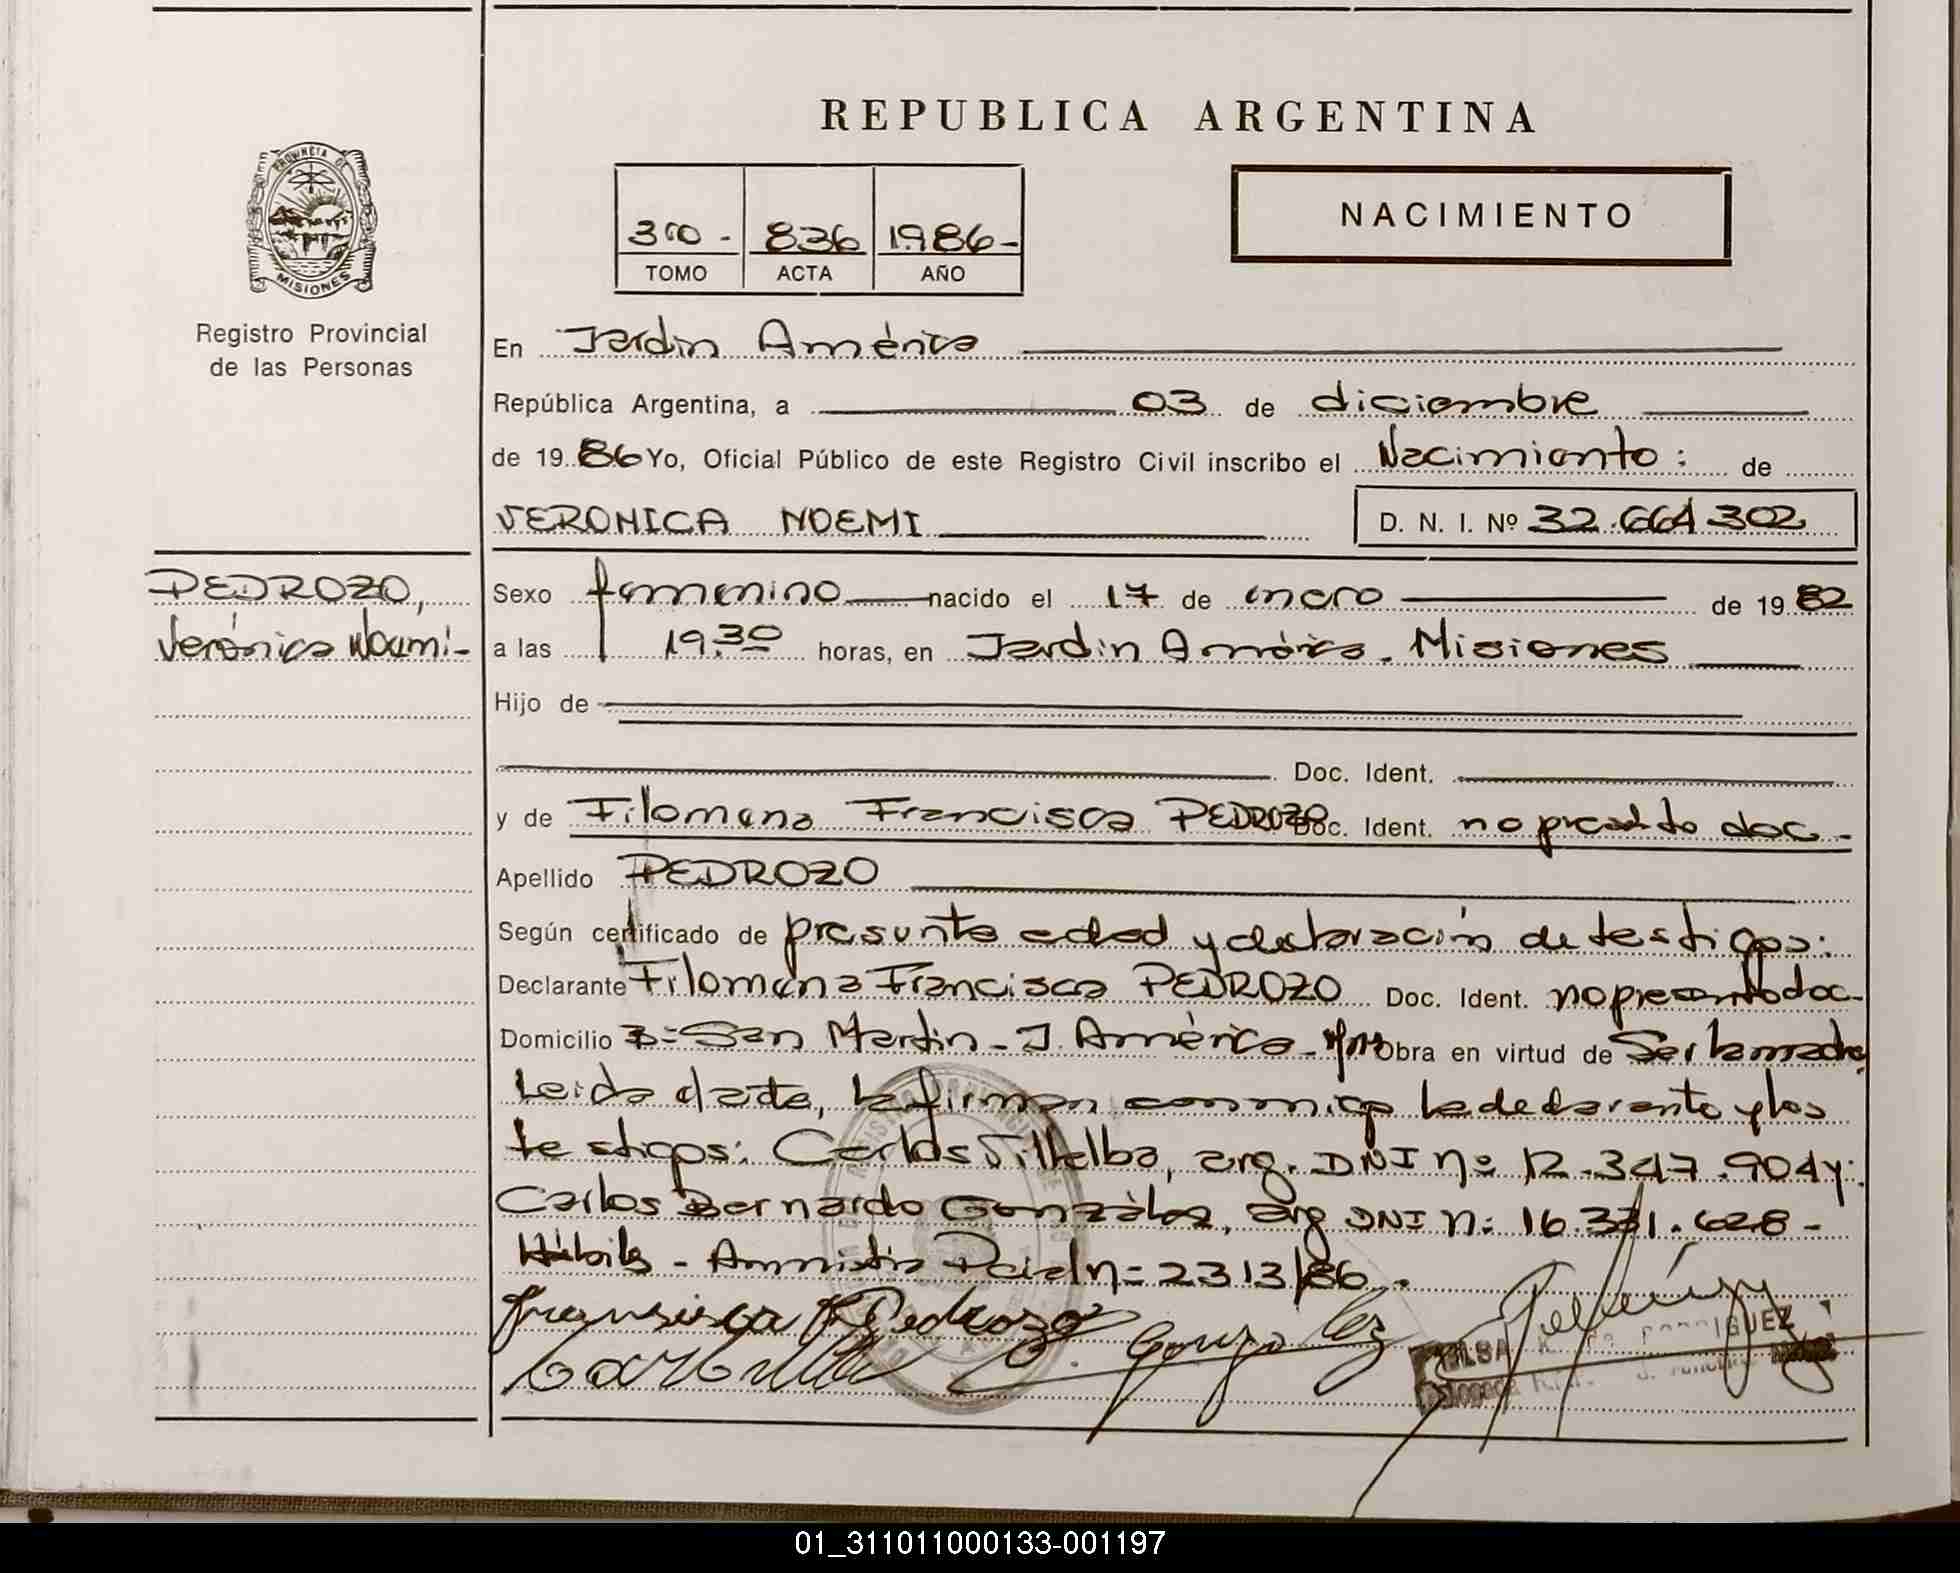 REPUBLICA ARGENTINA
PROVINCIA DE
MISIONES
Registro Provincial
de las Personas
NACIMIENTO
300 - 836 1986 -
TOMO ACTA AÑO
En Jardín América
República Argentina, a 03 de diciembre
de 19 86 Yo, Oficial Público de este Registro Civil inscribo el Nacimiento: de
VERONICA NOEMI D. N. I. Nº 32.664.302
PEDROZO,
Verónica Noemi-
Sexo femenino nacido el 17 de enero de 19 82
a las 19.30 horas, en Jardín América. Misiones
Hijo de
Doc. Ident.
y de Filomena Francisca PEDROZO Doc. Ident. no presentó doc-
Apellido PEDROZO
Según certificado de presunta edad y declaración de testigos:
Declarante Filomena Francisca PEDROZO Doc. Ident. no presentó doc-
Domicilio Bº San Martín - J. América - Mnes Obra en virtud de Ser la madre
Leída el acta, la firman conmigo la declarante y los
testigos: Carlos Villalba, arg. DNI nº 12.347.904 y:
Carlos Bernardo González, arg DNI nº 16.331.628 -
Hábiles - Amnistía Pcial nº 2313/86.
Fransisca F Pedrozo
Gonzalez
RODRIGUEZ
01_311011000133-001197